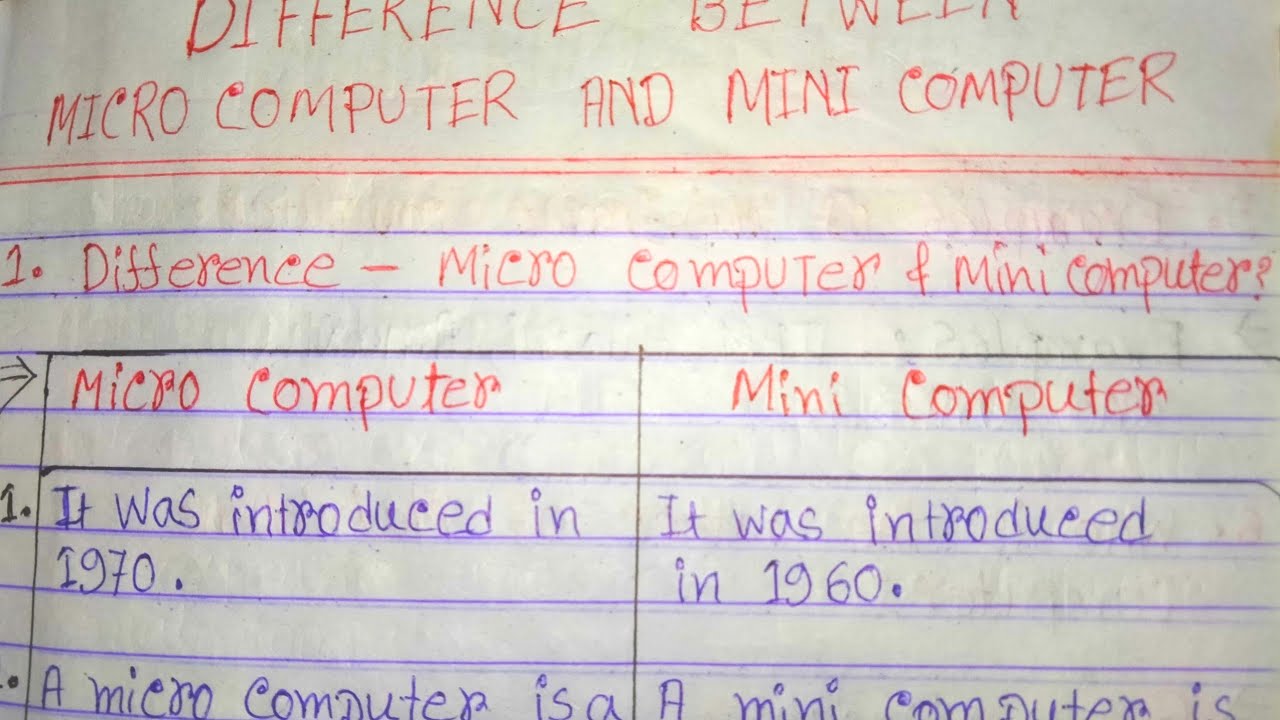 DIFFERENCE BETWEEN
MICRO COMPUTER AND MINI COMPUTER
1. Difference - Micro computer & Mini computer?
⇒ Micro computer Mini computer
1. It was introduced in It was introduced
1970. in 1960.
A micro computer is a A mini computer is